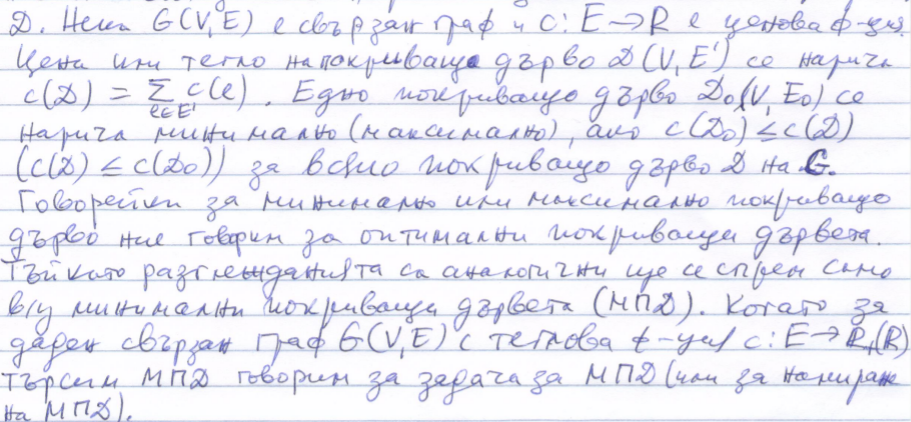 Д. Нека G(V,E) е свързан граф и c: E→R е ценова ф-ция.
Цена или тегло на покриващо дърво D(V,E') се нарича
c(D) = Σ c(e). Едно покриващо дърво D₀(V,E₀) се
e∈E'
нарича минимално (максимално), ако c(D₀) ≤ c(D)
(c(D) ≤ c(D₀)) за всяко покриващо дърво D на G.
Говорейки за минимално или максимално покриващо
дърво ние говорим за оптимални покриващи дървета.
Тъй като разглежданията са аналогични ще се спрем само
в/у минимални покриващи дървета (МПД). Когато за
даден свързан граф G(V,E) с теглова ф-ция c: E→R₊(R)
търсим МПД говорим за задача за МПД (или за намиране
на МПД).